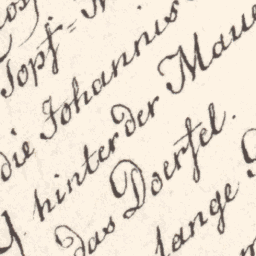 Topf=
die Johannis
hinter der Maue
das Doerfel.
lange